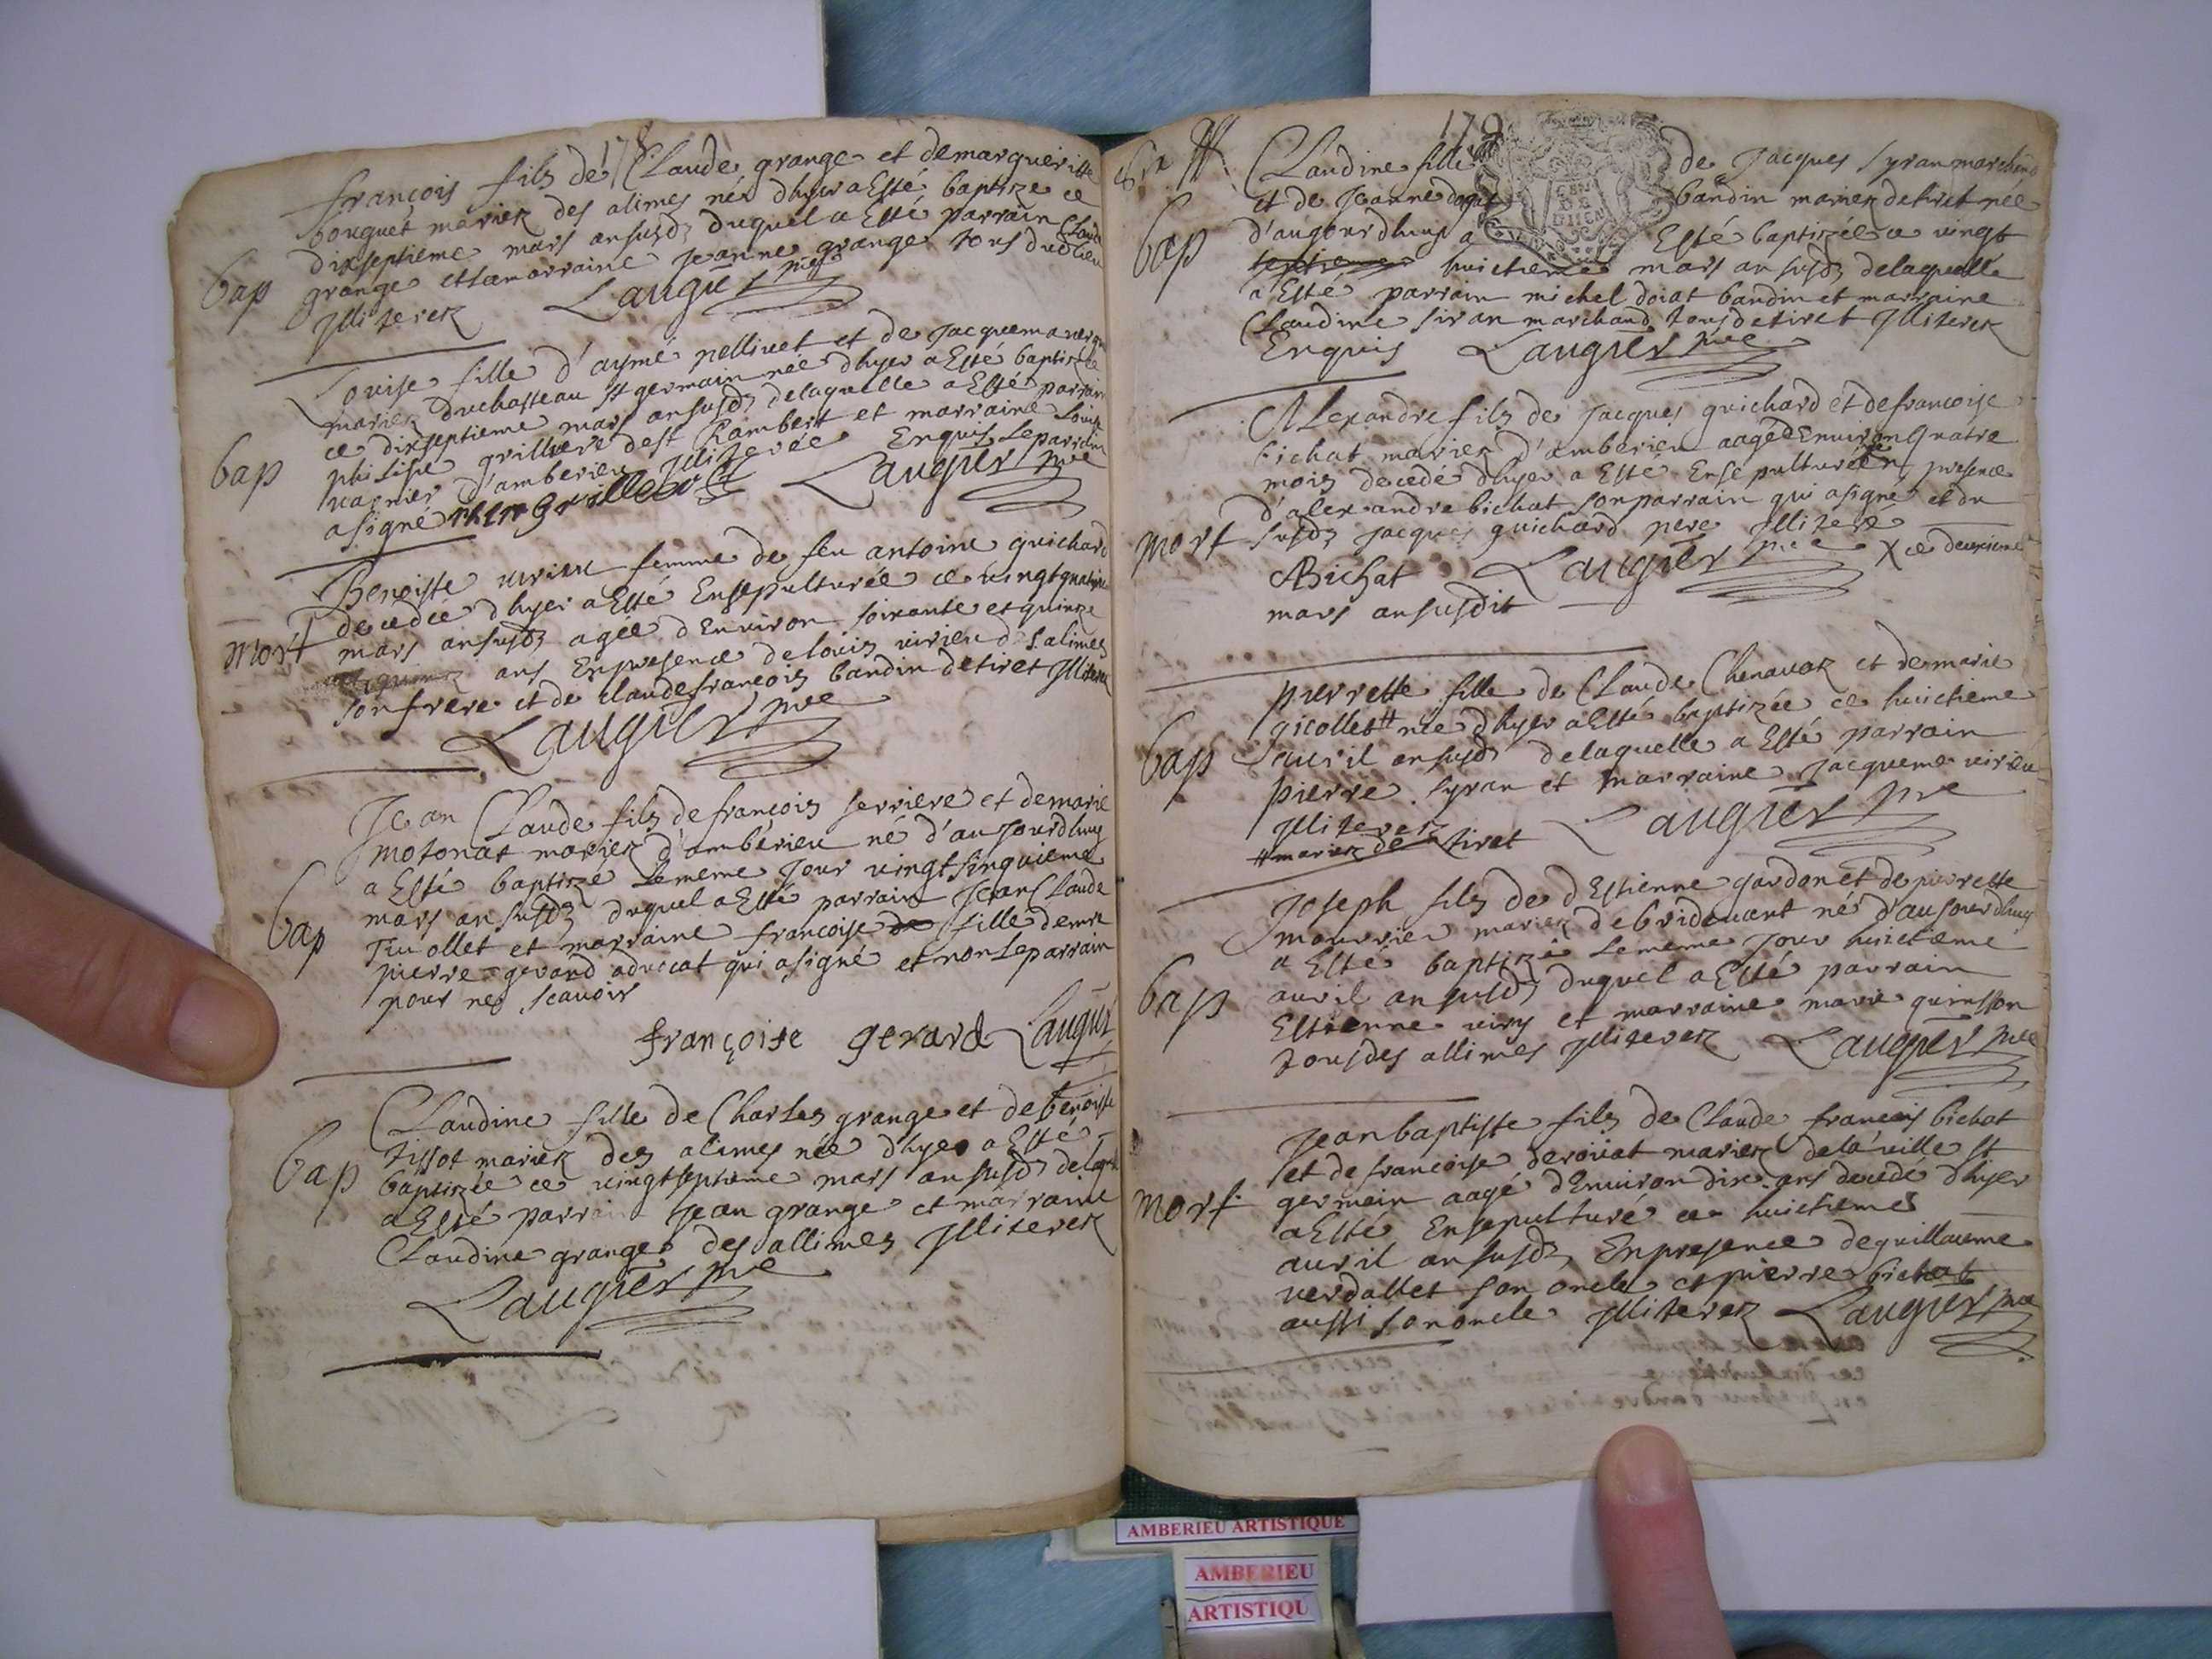 178
françois fils de Claude grange et demargueritte
bouguet mariez des alimes né dhyer a Esté baptize ce
dixseptieme mars ansusdt duquel a Esté parrain Claude
bap
grange et la marraine Jeanne grange tous dudlieu
Illiterez Laugier pre
Louise fille d'aymé pellivet et de Jacquema
mariez duchasteau st germain née dhyer a Esté baptizée
ce dixseptieme mars ansusdt delaquelle a Esté parrain
bap
philipe grilliere dest Rambert et marraine Louise
d'amberieu Illiterée Enquis Leparrain
asigné Laugier pre
Benoiste virieu femme de feu antoine guichard
decedee dhyer a Esté Ensepulturée ce vingtquatrieme
mort
mars ansusdt agée d'Environ soixante et quinze
ans Enpresence delouis virieu des alimes
son frere et de claudefrancois baudin detiret Illiterez
Laugier pre
Jean Claude fils defrancois serriere et demarie
motonat mariez d'amberieu né d'auJourdhuy
a Esté baptizé Lememe Jour vingtsinquieme
bap
mars ansusdt duquel a Esté parrain Jean Claude
Tuollet et marraine francoise de fille demre
pierre gerard advocat qui asigné et non Leparrain
pour ne scavoir
françoise gerard Laugier
Claudine fille de Charles grange et debenoiste
bap
tissot mariez des alimes née dhyer a Esté
baptizée ce vingtseptieme mars ansusdt delaqlle
a Esté parrain Jean grange et marraine
Claudine grange des allimes Illiterez
Laugier pre
179
Claudine fille de Jacques Syran marchand
et de Jeanne baudin mariez detiret née
bap
d'aujourdhuy a Esté baptizée ce vingt
septieme huictieme mars ansusdt delaquelle
a Esté parrain michel doiat baudin et marraine
Claudine siran marchand tous detiret Illiterez
Enquis Laugier pre
Alexandre fils de Jacques guichard et defrancoise
bichat mariez d'amberieu aagé d'Environ quatre
mois decedé dhyer a Esté Ensepulturé X En presence
d'alexandre bichat son parrain qui asigné et du
mort
susdt Jacques guichard pere Illiteré
ABichat Laugier pre X ce deuxieme
mars ansusdit
pierrette fille de Claude Chenavaz et demarie
gicollet # née dhyer a Esté baptizée ce huictieme
bap
avril ansusdt delaquelle a Esté parrain
pierre Syran et marraine Jacqueme virieu
Illiterez Laugier pre
# mariez de tiret
Joseph fils de d'Estienne gardon et de pierrette
mourrier mariez de bridevant né d'auJourdhuy
a Esté baptizé Lememe Jour huictieme
bap
avril ansusdt duquel a Esté parrain
Estienne viry et marraine marie quinsson
tousdes allimes Illiterez Laugier pre
Jeanbaptiste fils de Claude francois bichat
et defrancoise derouat mariez delaville st
mort
germain aagé d'Environ dix ans decedé dhyer
a Esté Ensepulturé ce huictieme
avril ansusdt Enpresence deguillaume
verdallet son oncle et pierre bichat
aussi son oncle Illiterez Laugier pre
AMBERIEU ARTISTIQUE
AMBERIEU
ARTISTIQU